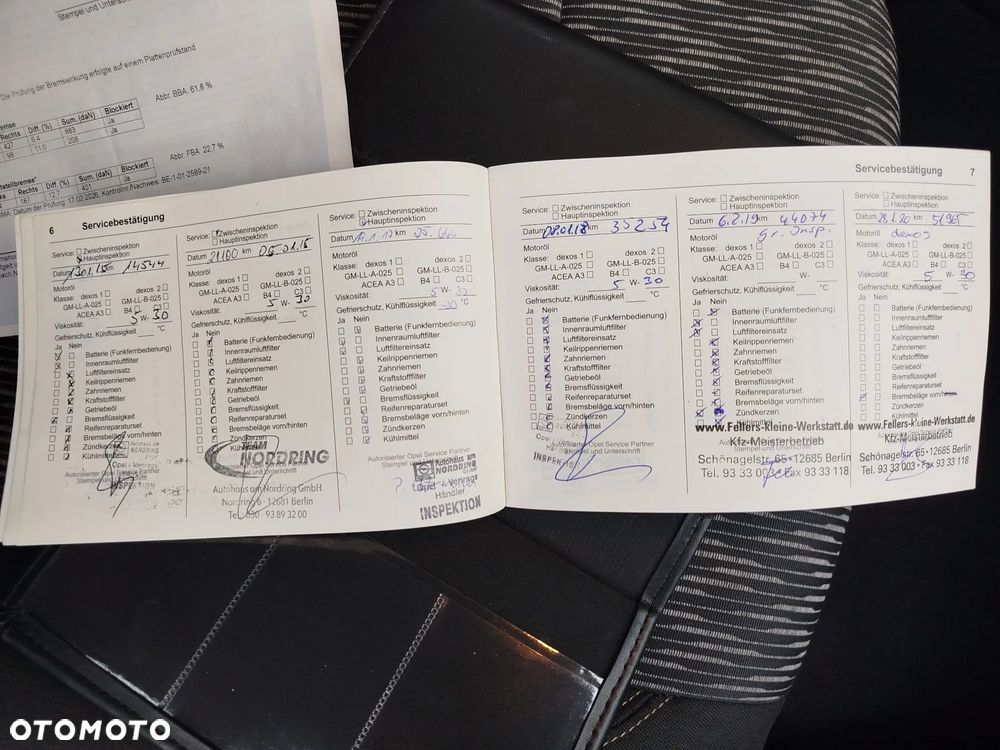 Die Prüfung der Bremswirkung erfolgte auf einem Plattenprüfstand
Abbr. BBA: 61,8 %
Rechts Diff. (%) Sum. (daN) Blockiert
427 6.4 663 Ja
98 11.0 208 Ja
Abbr. FBA: 22,7 %
Rechts Diff. (%) Sum. (daN) Blockiert
187 12.7 401 Ja
Datum der Prüfung: 17.02.2026, Kontrollnr/Nachweis: BE-1-01-2589-21
6 Servicebestätigung
Service: Zwischeninspektion
Hauptinspektion
Datum km 14544
Motoröl
Klasse: dexos 1 dexos 2
GM-LL-A-025 GM-LL-B-025
ACEA A3 B4 C3
Viskosität: 5 W- 30
Gefrierschutz, Kühlflüssigkeit °C
Ja Nein
Batterie (Funkfernbedienung)
Innenraumluftfilter
Luftfiltereinsatz
Keilrippenriemen
Zahnriemen
Kraftstofffilter
Getriebeöl
Bremsflüssigkeit
Reifenreparaturset
Bremsbeläge vorn/hinten
Zündkerzen
Kühlmittel
Service: Zwischeninspektion
Hauptinspektion
Datum 21.100 km 05.01.16
Motoröl
Klasse: dexos 1 dexos 2
GM-LL-A-025 GM-LL-B-025
ACEA A3 B4 C3
Viskosität: 5 W- 30
Gefrierschutz, Kühlflüssigkeit °C
Ja Nein
Batterie (Funkfernbedienung)
Innenraumluftfilter
Luftfiltereinsatz
Keilrippenriemen
Zahnriemen
Kraftstofffilter
Getriebeöl
Bremsflüssigkeit
Reifenreparaturset
Bremsbeläge vorn/hinten
Zündkerzen
TEAM NORDRING
Autohaus am Nordring GmbH
Nordring 6 · 12681 Berlin
Tel.: 030 - 93 89 32 00
Service: Zwischeninspektion
Hauptinspektion
Datum km
Motoröl
Klasse: dexos 1 dexos 2
GM-LL-A-025 GM-LL-B-025
ACEA A3 B4 C3
Viskosität: 5 W- 30
Gefrierschutz, Kühlflüssigkeit -30 °C
Ja Nein
Batterie (Funkfernbedienung)
Innenraumluftfilter
Luftfiltereinsatz
Keilrippenriemen
Zahnriemen
Kraftstofffilter
Getriebeöl
Bremsflüssigkeit
Reifenreparaturset
Bremsbeläge vorn/hinten
Zündkerzen
Kühlmittel
Autorisierter Opel Service Partner
Autohaus
NORDRING
Opel - Vertrags
Händler
INSPEKTION
Servicebestätigung 7
Service: Zwischeninspektion
Hauptinspektion
Datum 08.01.18 km 35254
Motoröl
Klasse: dexos 1 dexos 2
GM-LL-A-025 GM-LL-B-025
ACEA A3 B4 C3
Viskosität: 5 W- 30
Gefrierschutz, Kühlflüssigkeit °C
Ja Nein
Batterie (Funkfernbedienung)
Innenraumluftfilter
Luftfiltereinsatz
Keilrippenriemen
Zahnriemen
Kraftstofffilter
Getriebeöl
Bremsflüssigkeit
Reifenreparaturset
Bremsbeläge vorn/hinten
Zündkerzen
Kühlmittel
Autorisierter Opel Service Partner
Stempel und Unterschrift
Service: Zwischeninspektion
Hauptinspektion
Datum 6.2.19 km 44074
Motoröl gr. Insp.
Klasse: dexos 1 dexos 2
GM-LL-A-025 GM-LL-B-025
ACEA A3 B4 C3
Viskosität: W-
Gefrierschutz, Kühlflüssigkeit °C
Ja Nein
Batterie (Funkfernbedienung)
Innenraumluftfilter
Luftfiltereinsatz
Keilrippenriemen
Zahnriemen
Kraftstofffilter
Getriebeöl
Bremsflüssigkeit
Reifenreparaturset
Bremsbeläge vorn/hinten
Zündkerzen
www.Fellers-kleine-Werkstatt.de
Kfz-Meisterbetrieb
Schönagelstr. 65 · 12685 Berlin
Tel. 93 33 003 · Fax 93 33 118
Service: Zwischeninspektion
Hauptinspektion
Datum 28.1.20 km 51965
Motoröl dexos
Klasse: dexos 1 dexos 2
GM-LL-A-025 GM-LL-B-025
ACEA A3 B4 C3
Viskosität: 5 W- 30
Gefrierschutz, Kühlflüssigkeit °C
Ja Nein
Batterie (Funkfernbedienung)
Innenraumluftfilter
Luftfiltereinsatz
Keilrippenriemen
Zahnriemen
Kraftstofffilter
Getriebeöl
Bremsflüssigkeit
Reifenreparaturset
Bremsbeläge vorn/hinten
Zündkerzen
Kühlmittel
www.Fellers-kleine-Werkstatt.de
Kfz-Meisterbetrieb
Schönagelstr. 65 · 12685 Berlin
Tel. 93 33 003 · Fax 93 33 118
OTOMOTO